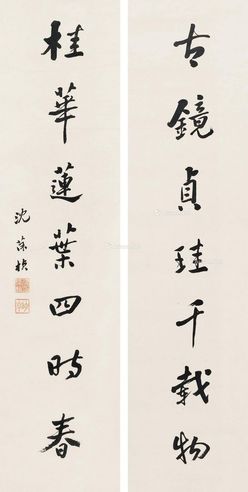 古鏡貞珪千載物
桂華蓮葉四時春
沈葆楨